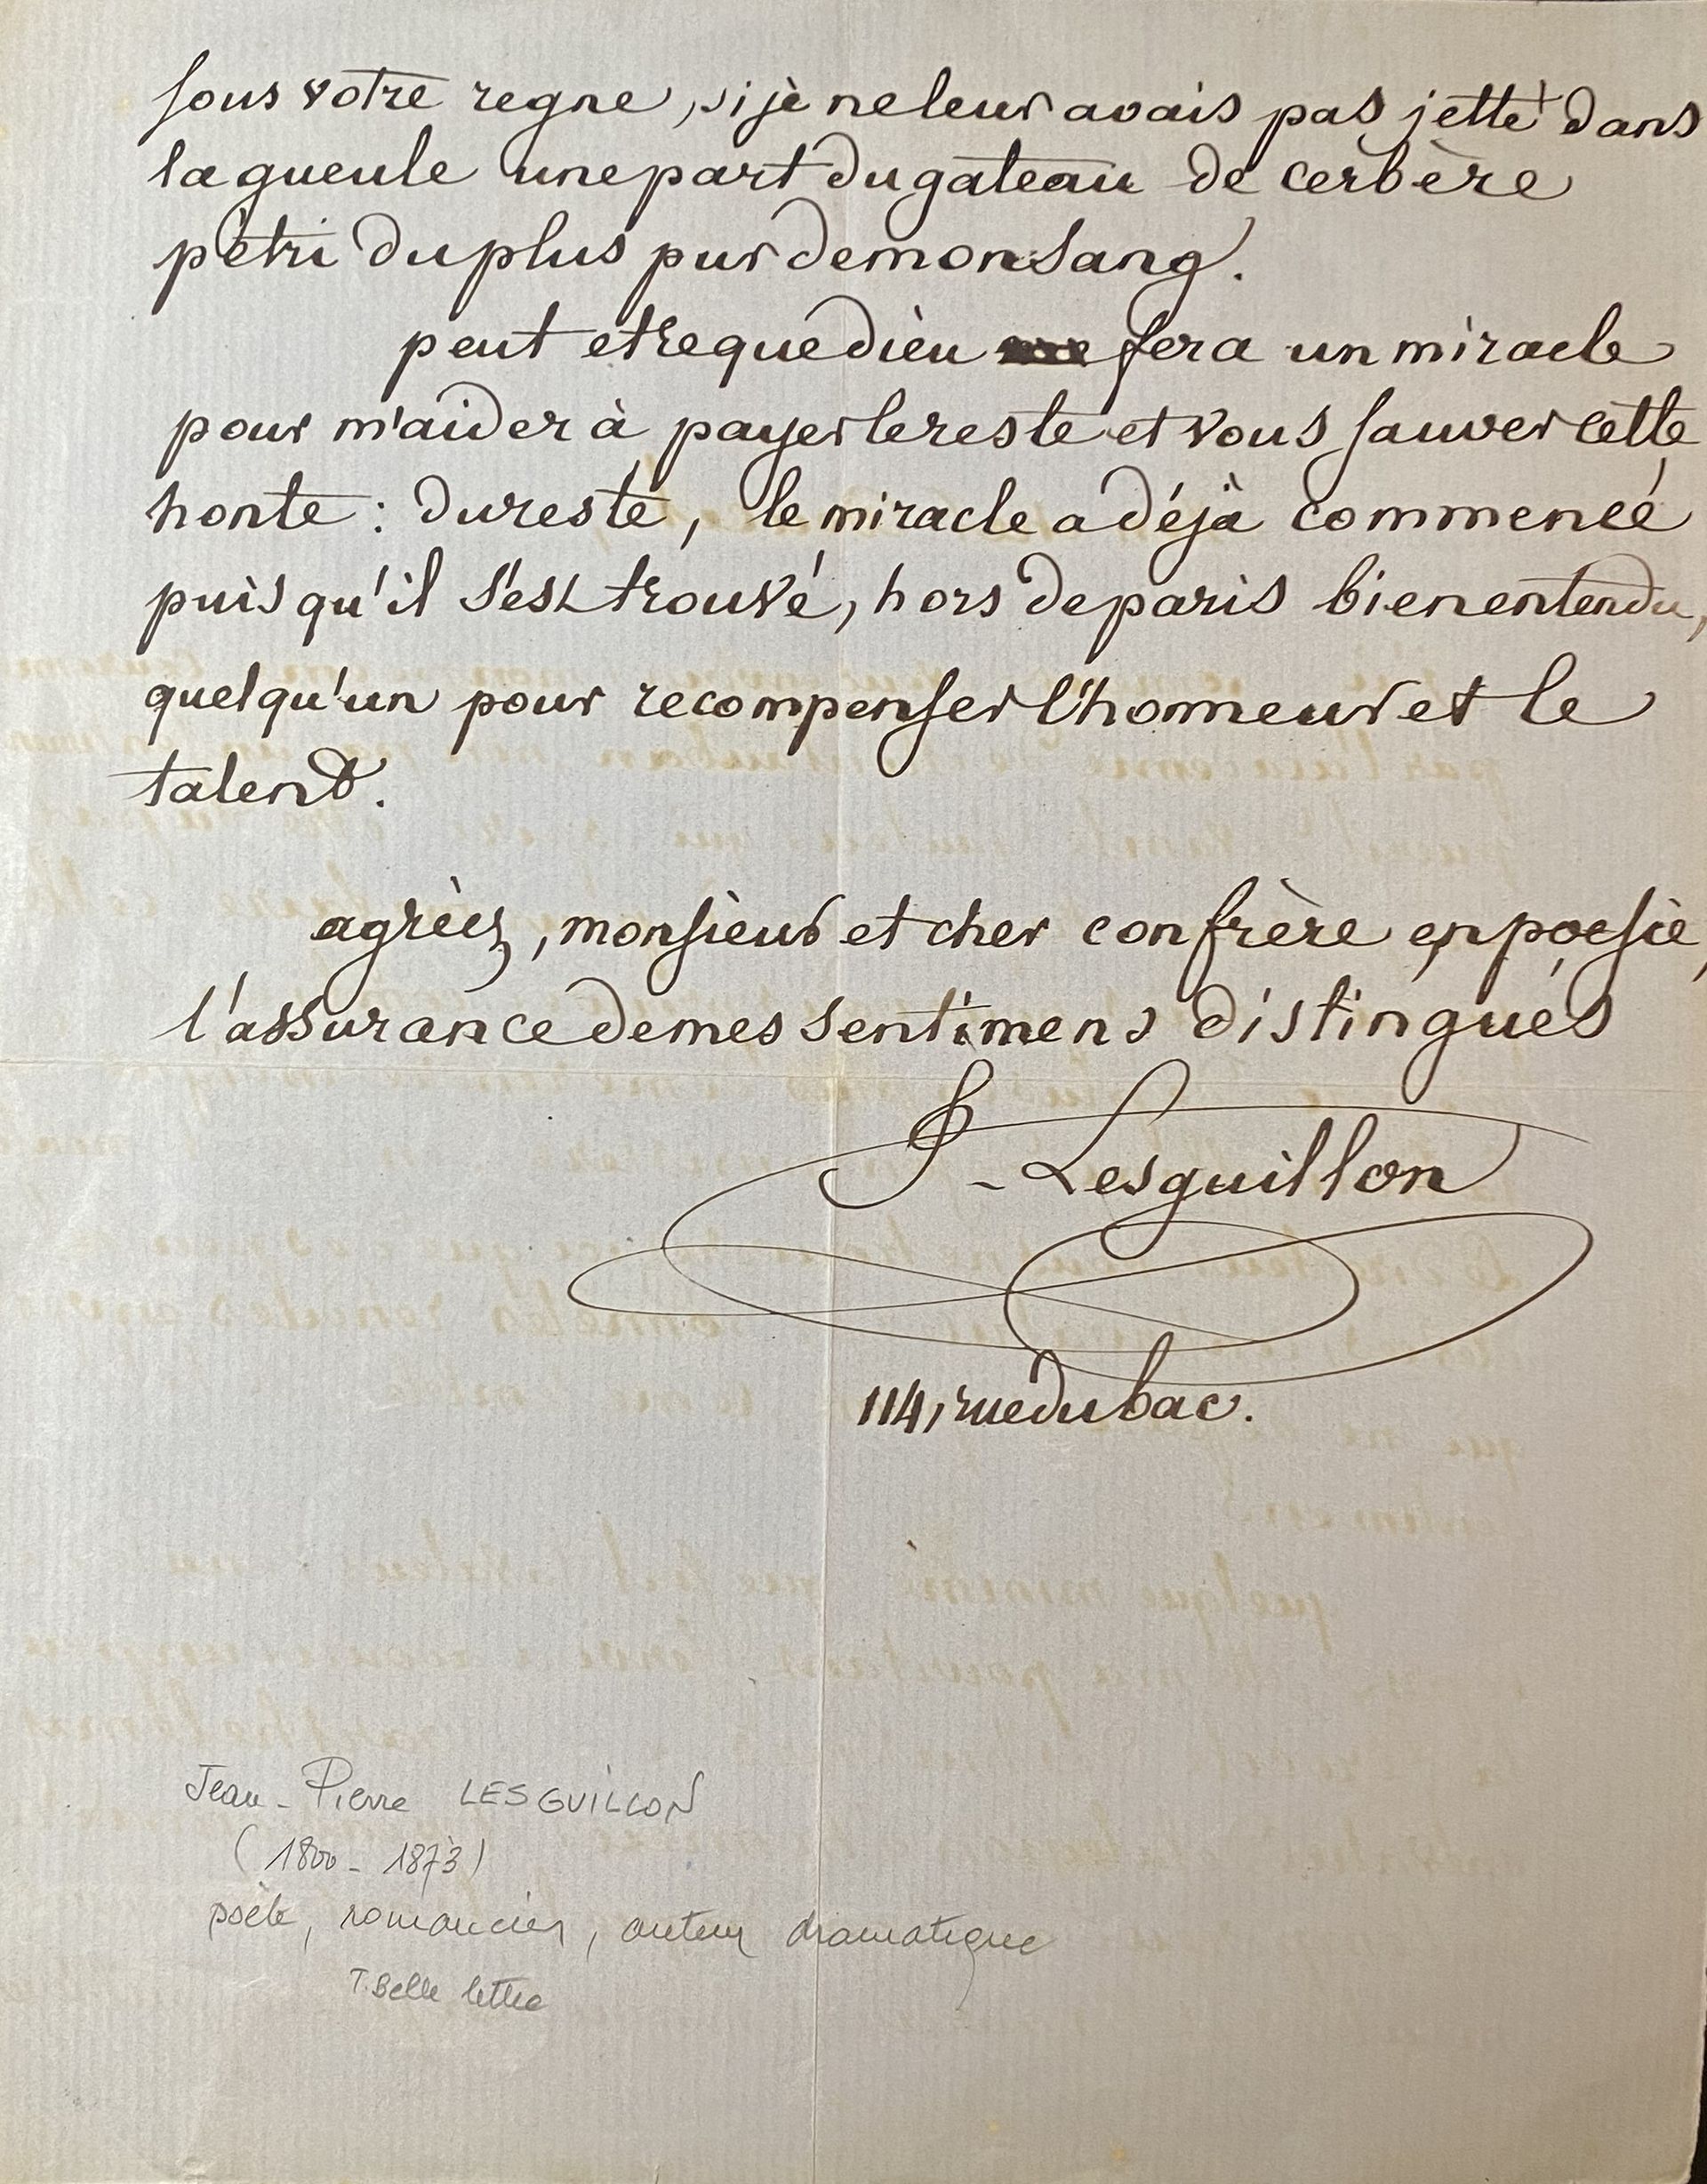 sous votre regne, si je ne leur avais pas jetté dans
la gueule une part du gateau de cerbère
pètri du plus pur de mon sang.
peut etre que dieu fera un miracle
pour m'aider à payer le reste et vous sauver cette
honte : du reste, le miracle a déjà commencé
puisqu'il s'est trouvé, hors de paris bien entendu,
quelqu'un pour recompenser l'honneur et le
talent.
agrèez, monsieur et cher confrère en poesie,
l'assurance de mes sentimens distingués
J - Lesguillon
114, rue du bac.
Jean-Pierre LESGUILLON
(1800 - 1873)
poète, romancier, auteur dramatique
T. Belle lettre